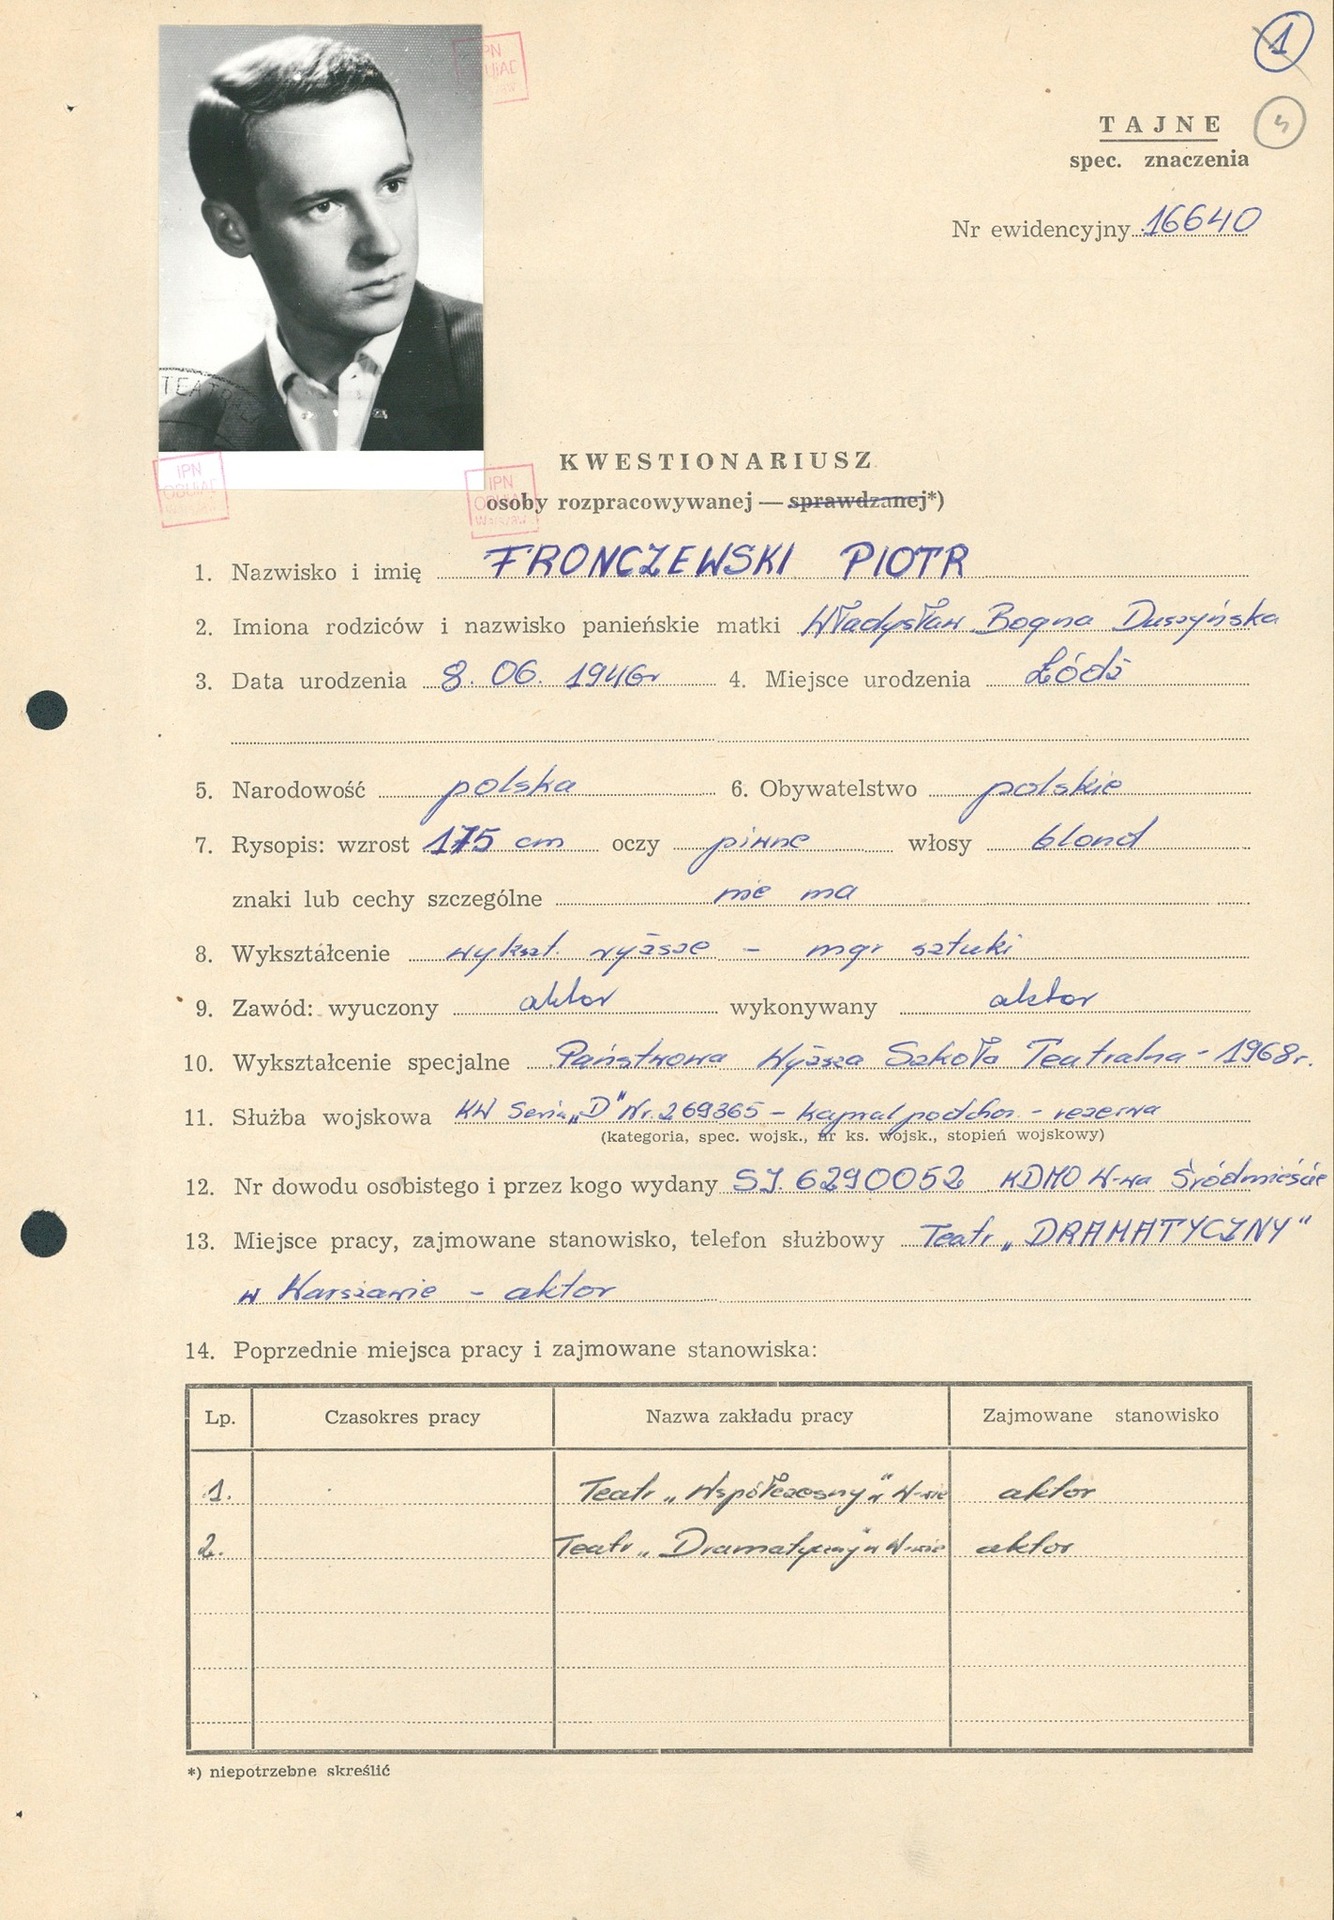 1
TAJNE
5
spec. znaczenia
Nr ewidencyjny 16640
IPN
TEATRAL
KWESTIONARIUSZ
IPN
IPN
osoby rozpracowywanej — sprawdzanej*)
1. Nazwisko i imię FRONCZEWSKI PIOTR
2. Imiona rodziców i nazwisko panieńskie matki Władysław Bogna Duszyńska
3. Data urodzenia 8. 06. 1946r 4. Miejsce urodzenia Łódź
5. Narodowość polska 6. Obywatelstwo polskie
7. Rysopis: wzrost 175 cm oczy piwne włosy blond
znaki lub cechy szczególne nie ma
8. Wykształcenie wykszt. wyższe - mgr sztuki
9. Zawód: wyuczony aktor wykonywany aktor
10. Wykształcenie specjalne Państwowa Wyższa Szkoła Teatralna - 1968r.
11. Służba wojskowa KW Seria „D" Nr. 269365 - kapral podchor. - rezerwa
(kategoria, spec. wojsk., nr ks. wojsk., stopień wojskowy)
12. Nr dowodu osobistego i przez kogo wydany SJ. 6290052 KDMO W-wa Śródmieście
13. Miejsce pracy, zajmowane stanowisko, telefon służbowy Teatr „DRAMATYCZNY"
w Warszawie - aktor
14. Poprzednie miejsca pracy i zajmowane stanowiska:
Lp. Czasokres pracy Nazwa zakładu pracy Zajmowane stanowisko
1. Teatr „Współczesny" w W-wie aktor
2. Teatr „Dramatyczny" w W-wie aktor
*) niepotrzebne skreślić